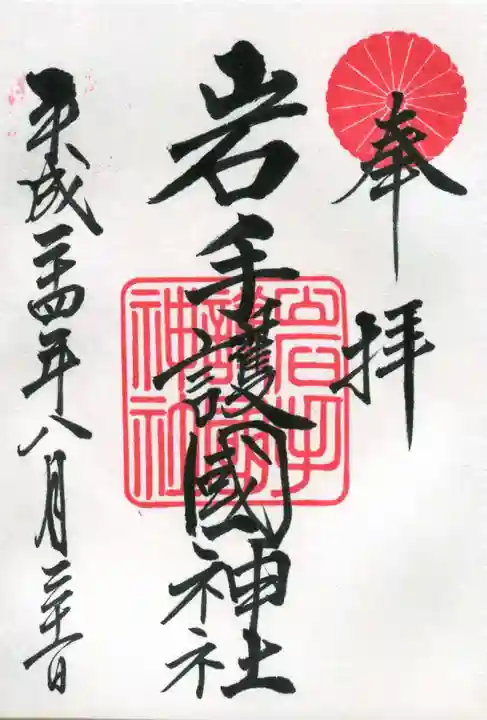 奉拝
岩手護國神社
岩手
護國
神社
平成二十四年八月二十一日